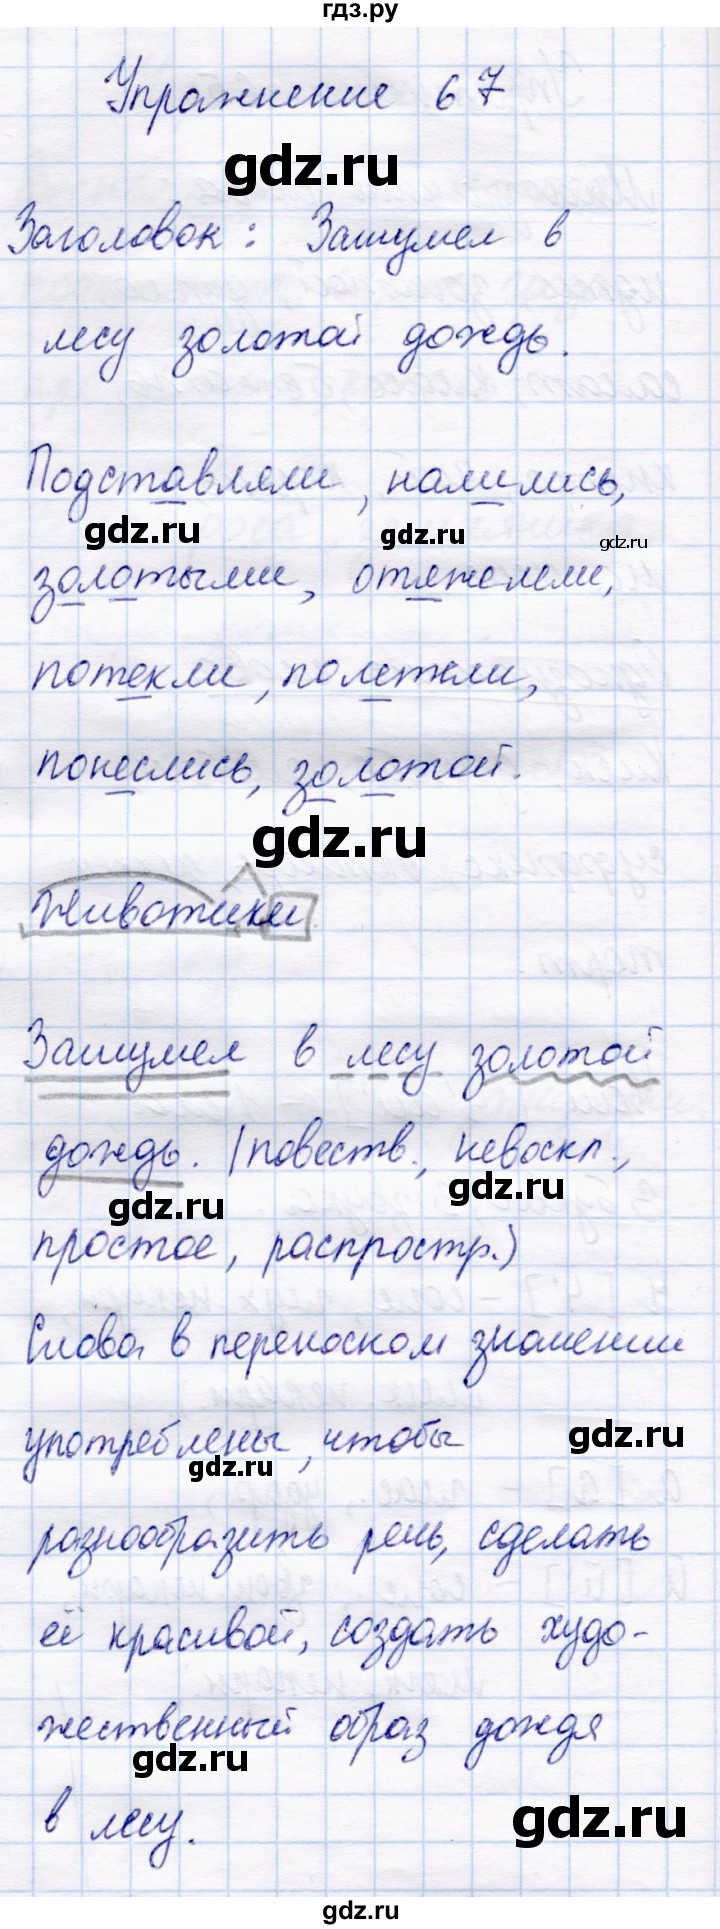 гдз.ру
Упражнение 67
gdz.ru
Заголовок: Зашумел в
лесу золотой дождь.
Подставляли, налились,
gdz.ru gdz.ru gdz.ru
золотыми, отяжелели,
потекли, полетели,
понеслись, золотой.
gdz.ru
животики
Зашумел в лесу золотой
дождь. (повеств., невоскл.,
gdz.ru gdz.ru
простое, распростр.)
Слова в переносном значении
употреблены, чтобы
gdz.ru gdz.ru
разнообразить речь, сделать
её красивой, создать худо-
жественный образ дождя
gdz.ru
в лесу.
gdz.ru
gdz.ru